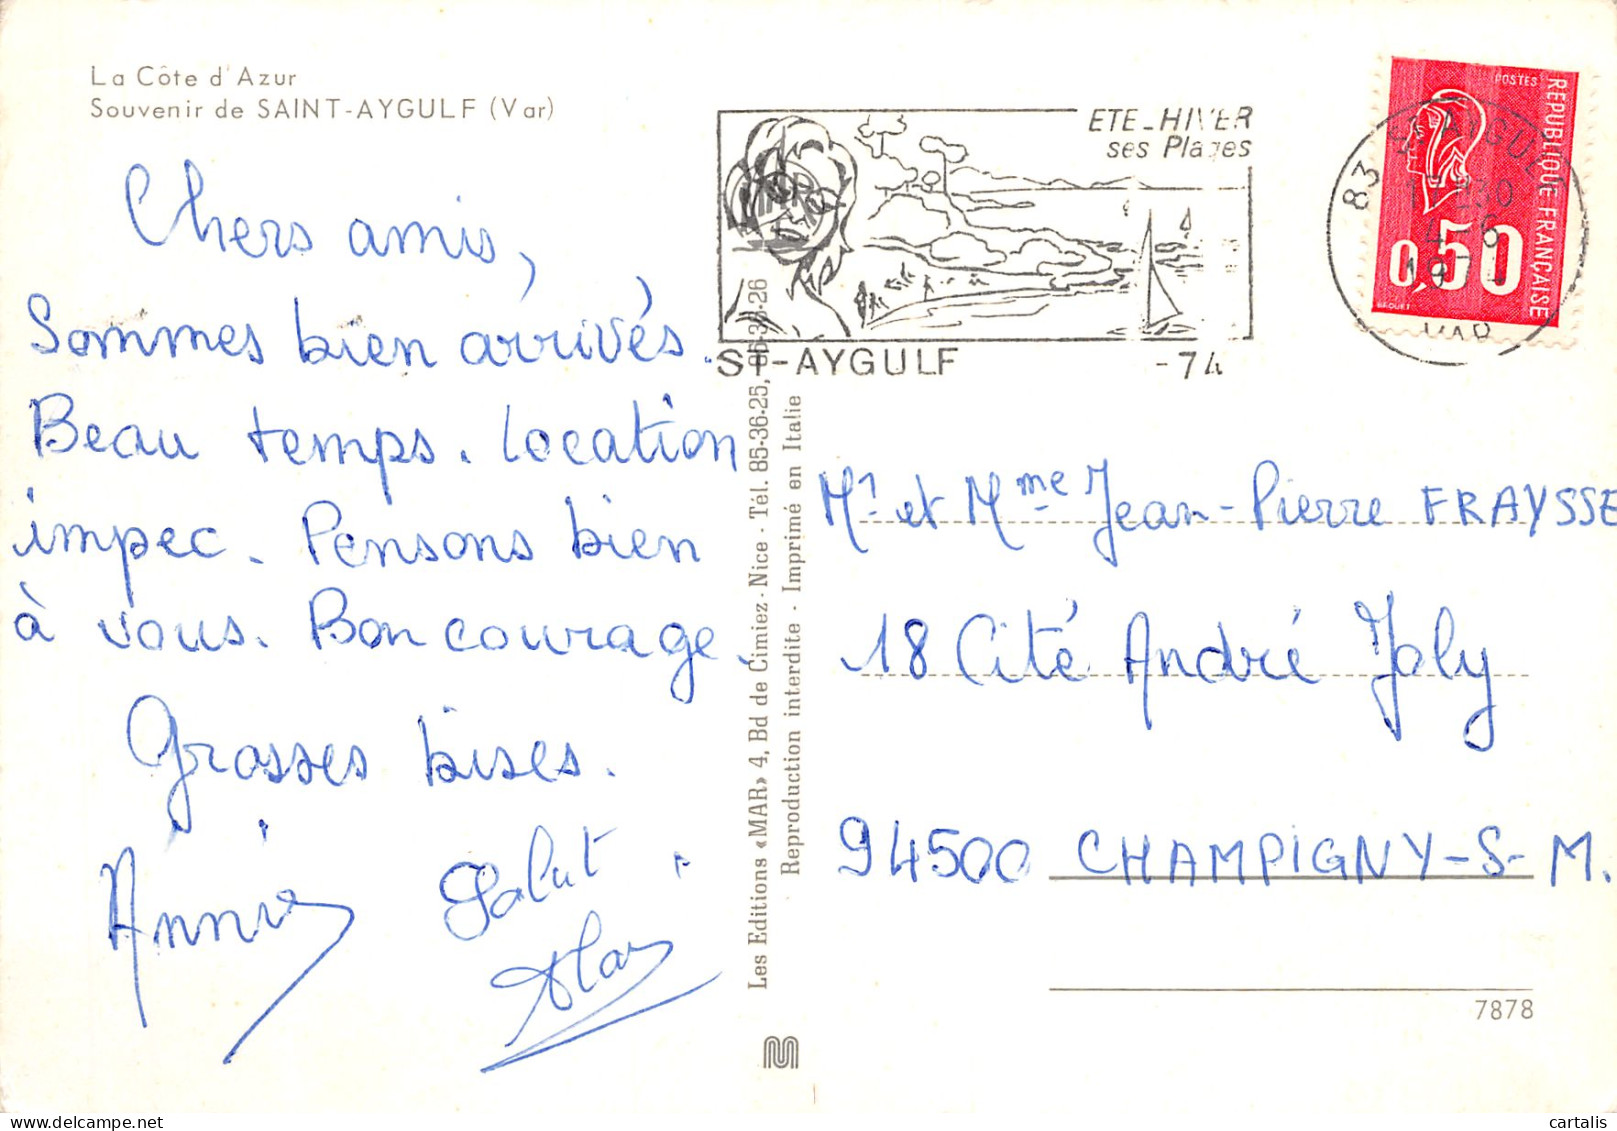 La Côte d'Azur
Souvenir de SAINT-AYGULF (Var)
Chers amis,
Sommes bien arrivés.
Beau temps. Location
impec. Pensons bien
à vous. Bon courage.
Grosses bises.
Annie
Salut
Les Editions «MAR» 4, Bd de Cimiez - Nice - Tél. 85-36-25, 86-33-26
Reproduction interdite - Imprimé en Italie
ETE-HIVER
ses Plages
ST-AYGULF
-74
83 ST AYGULF
VAR
POSTES
REPUBLIQUE FRANÇAISE
0,50
BEQUET
Mr et Mme Jean-Pierre FRAYSSE
18 Cité André Joly
94500 CHAMPIGNY-S-M.
7878
cartalis